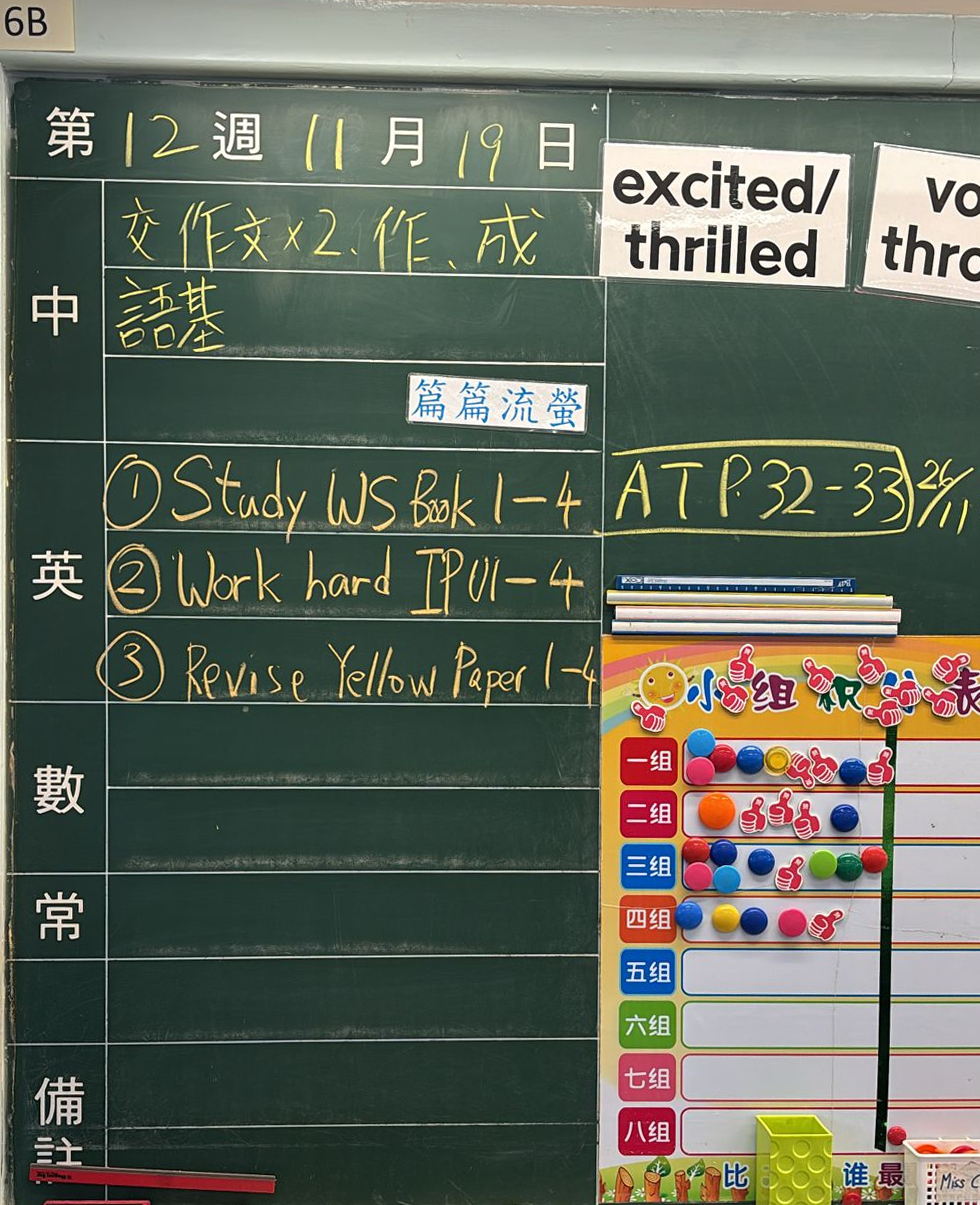 6B
第12週 11月19日
中
交作文×2、作、成
語基
篇篇流螢
英
①Study WS Book 1-4
②Work hard IP U1-4
③Revise Yellow Paper 1-4
數
常
備
註
excited/
thrilled
vo
thro
AT P.32-33) 26/11
小组积分表
一组
二组
三组
四组
五组
六组
七组
八组
比 谁最
Miss C